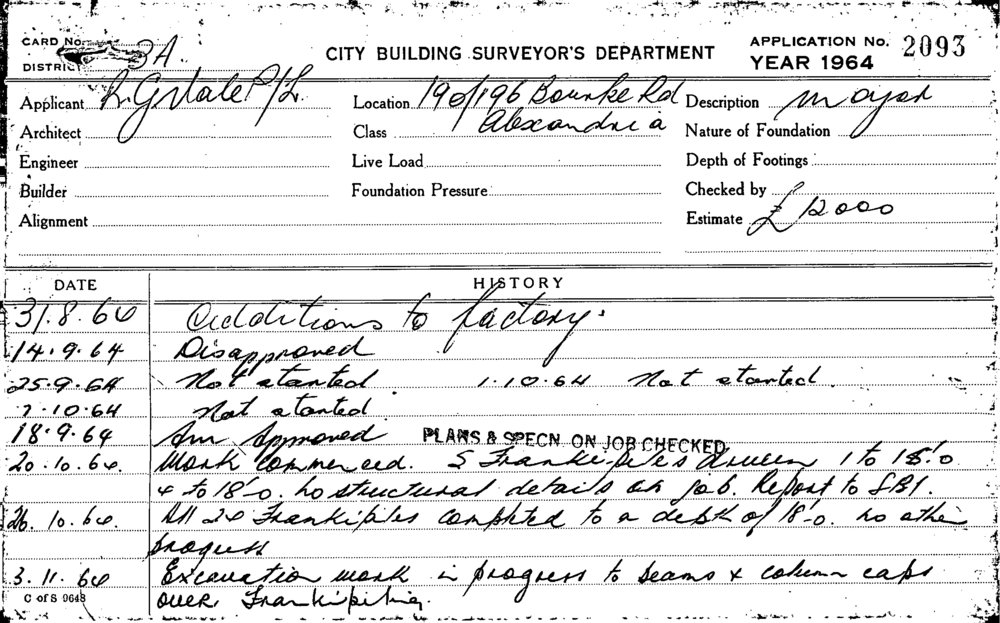 CARD No. 3A CITY BUILDING SURVEYOR'S DEPARTMENT APPLICATION No. 2093
DISTRICT YEAR 1964
Applicant R. G. Slale P/L. Location 190/196 Bourke Rd Description major
Architect Class Alexandria Nature of Foundation
Engineer Live Load Depth of Footings
Builder Foundation Pressure Checked by
Alignment Estimate £12000
DATE HISTORY
31.8.64 Additions to factory.
14.9.64 Disapproved
25.9.64 Not started 1.10.64 Not started.
7.10.64 Not started
18.9.64 Am Approved PLANS & SPECN. ON JOB CHECKED
20.10.64. Work commenced. 5 Franki-piles driven 1 to 15'.0
4 to 18'-0. no structural details on job. Report to SBI.
26.10.64. All 24 Frankipiles completed to a depth of 18'-0. no other
progress
3.11.64 Excavation work in progress to beams & column caps
C of S 9648 over Frankipiling.